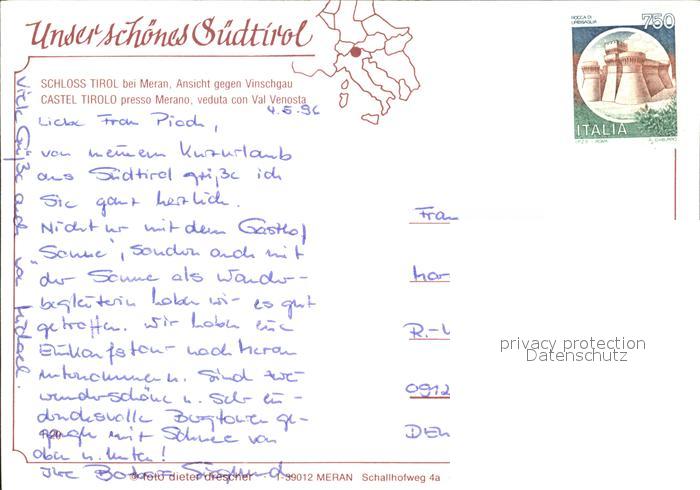 Unser schönes Südtirol
ROCCA DI
URBISAGLIA
750
ITALIA
SCHLOSS TIROL bei Meran, Ansicht gegen Vinschgau
CASTEL TIROLO presso Merano, veduta con Val Venosta
4.5.96
Liebe Frau
von meinem Kurzurlaub
aus Südtirol grüße ich
Sie ganz herzlich.
Nicht nur mit dem Gasthof
"Sonne", sondern auch mit
der Sonne als Wander-
begleiterin haben wir es gut
getroffen. Wir haben eine
Einkaufstour nach Meran
unternommen u. sind zwei
wunderschöne u. sehr ein-
drucksvolle Bergtouren ge-
gangen mit Schnee von
oben u. unten!
Ihre
Viele Grüße auch von Michael.
Frau
R.-
0912
DEU
privacy protection
Datenschutz
© foto dieter drescher I-39012 MERAN Schallhofweg 4a